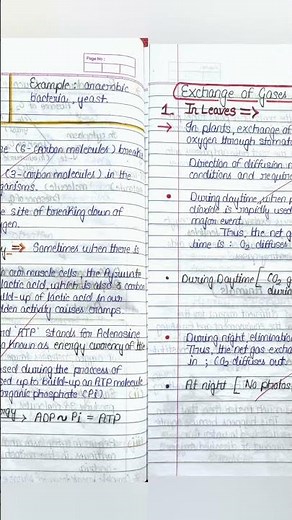 Page No:
Example: anaerobic
bacteria, yeast.
(6-carbon molecules) breaks
(3-carbon molecules) in the
site of breaking down of
Sometimes when there is
muscle cells, the Pyruvate
lactic acid, which is also a carbon
build-up of lactic acid in our
sudden activity causes cramps.
'ATP' stands for Adenosine
known as energy currency of the
used during the process of
used up to build-up an ATP molecule
inorganic phosphate (Pi).
→ ADP ~ Pi = ATP
Exchange of Gases
1. In Leaves ⇒
→ In plants, exchange of
oxygen through stomata
Direction of diffusion
conditions and
• During daytime, when
dioxide is rapidly used
major event.
Thus, the net
time is : O₂ diffuses
• During Daytime [ CO₂
during
• During night, elimination
Thus, the net gas
in ; CO₂ diffuses out.
• At night [ No